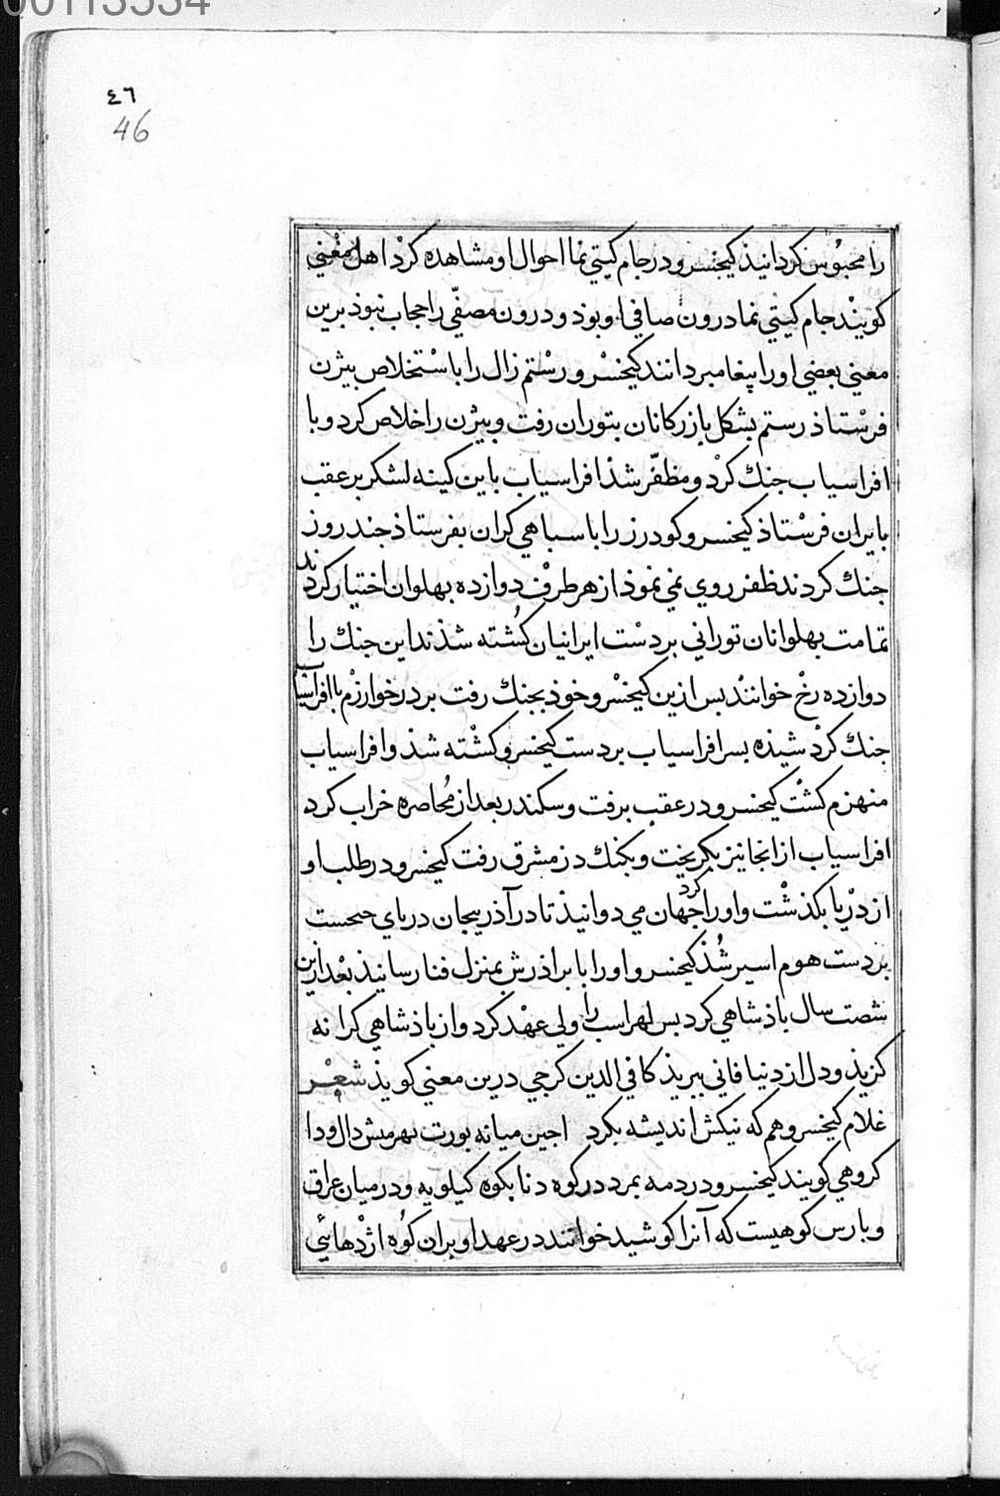 00113534
٤٦
46
را محبوس کردانیذ کیخسرو در جام کیتي نما احوال او مشاهده کرد اهل معني
کویند جام کیتي نما درون صافي او بوذ و درون مصفّی را حجاب نبوذ برین
معني بعضي اورا پیغامبر دانند کیخسرو رستم زال را باستخلاص بیژن
فرستاذ رستم بشکل بازرکانان بتوران رفت و بیژن را خلاص کرد و با
افراسیاب جنك کرد و مظفّر شذ افراسیاب باین کینه لشکر بر عقب
بایران فرستاذ کیخسرو کودرز را با سباهي کران بفرستاذ جند روز
جنك کردند ظفر روي نمي نموذ از هر طرف دوازده بهلوان اختیار کردند
تمامت بهلوانان توراني بر دست ایرانیان کُشته شذند این جنك را
دوازده رخ خوانند بس ازین کیخسرو خوذ بجنك رفت بر در خوارزم با افراسیاب
جنك کرد شیذه بسر افراسیاب بر دست کیخسرو کشته شذ و افراسیاب
منهزم کشت کیخسرو در عقب برفت و سکندر بعد از مُحاصره خراب کرد
افراسیاب از انجا نیز بکریخت و بکنك دز مشرق رفت کیخسرو در طلب او
از دریا بکذشت و اورا کرد جهان مي دوانیذ تا در آذربیجان دریاي حىحست
بر دست هوم اسیر شُذ کیخسرو اورا با براذرش بمنزل فنا رسانیذ بعد ازین
شصت سال باذشاهي کرد بس لهراسب را ولي عهد کرد و از باذشاهي کرانه
کزیذ و دل از دنیا فاني ببریذ کافي الدین کرجي درین معني کویذ شعر
غلام کیخسرو هم که نیکش اندیشه بکرد اجین میانه بورت دال ودا
کروهي کویند کیخسرو در دمه بمرد در کوه دنا بکوه کیلویه و در میان عراق
و بارس کوهیست که آنرا کوشید خوانند در عهد او بران کوه اژدهائي